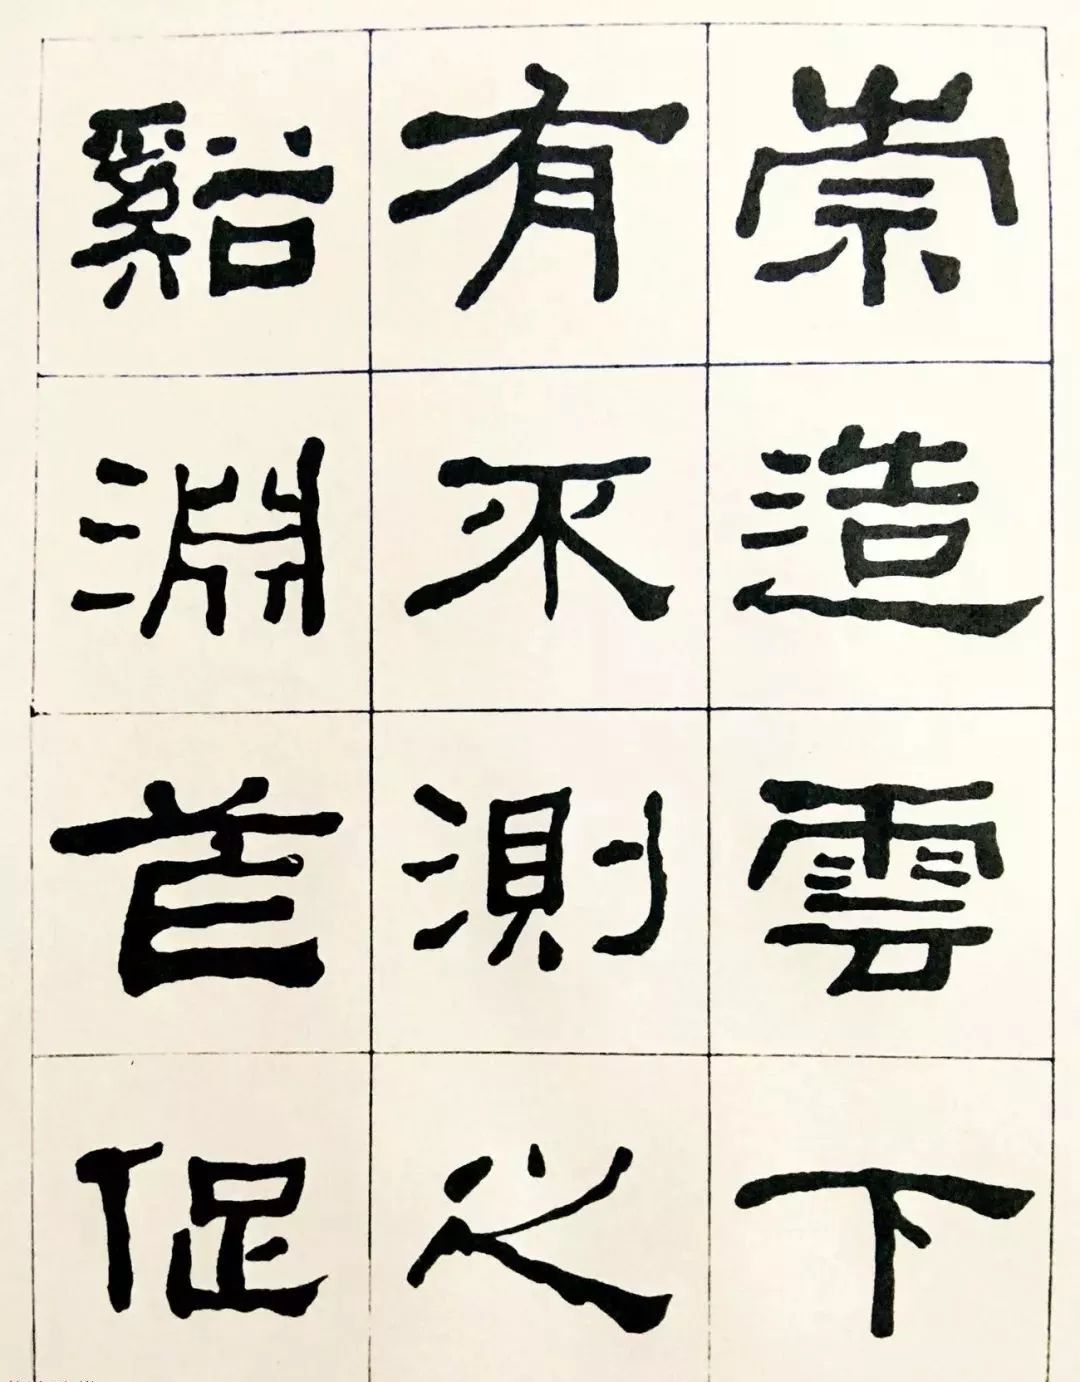 崇造雲下
有不測之
谿淵芒促